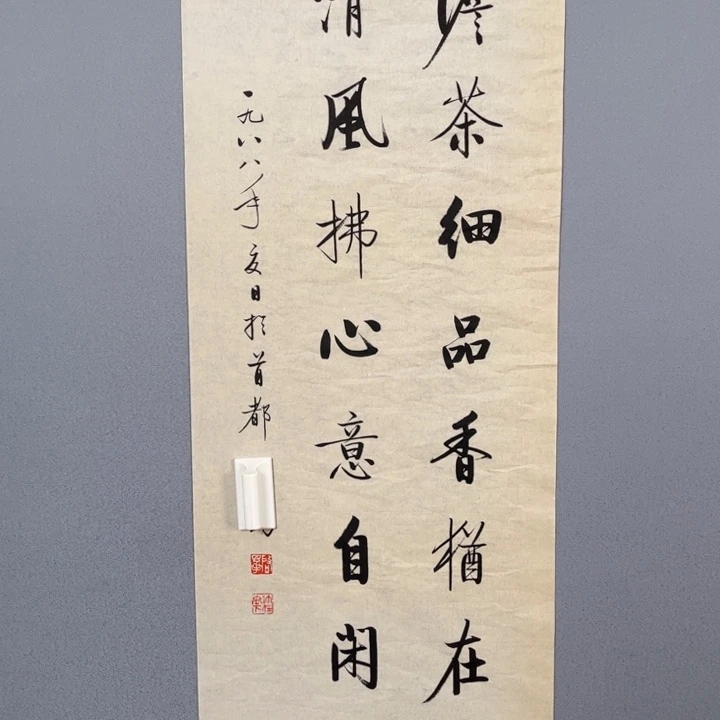 茶细品香猶在
清风拂心意自闲
一九八八年夏日於首都